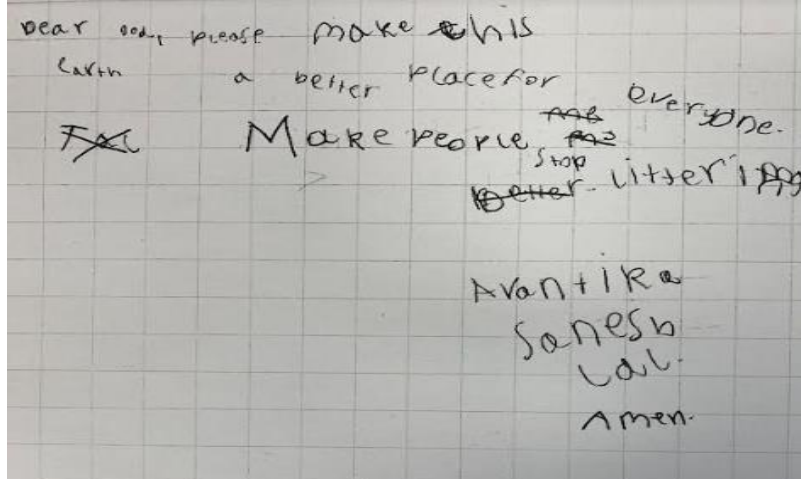 Dear God, please make this
Earth a better place for everyone.
Make people stop
littering
Avantika
Sanesh
Lal.
Amen.